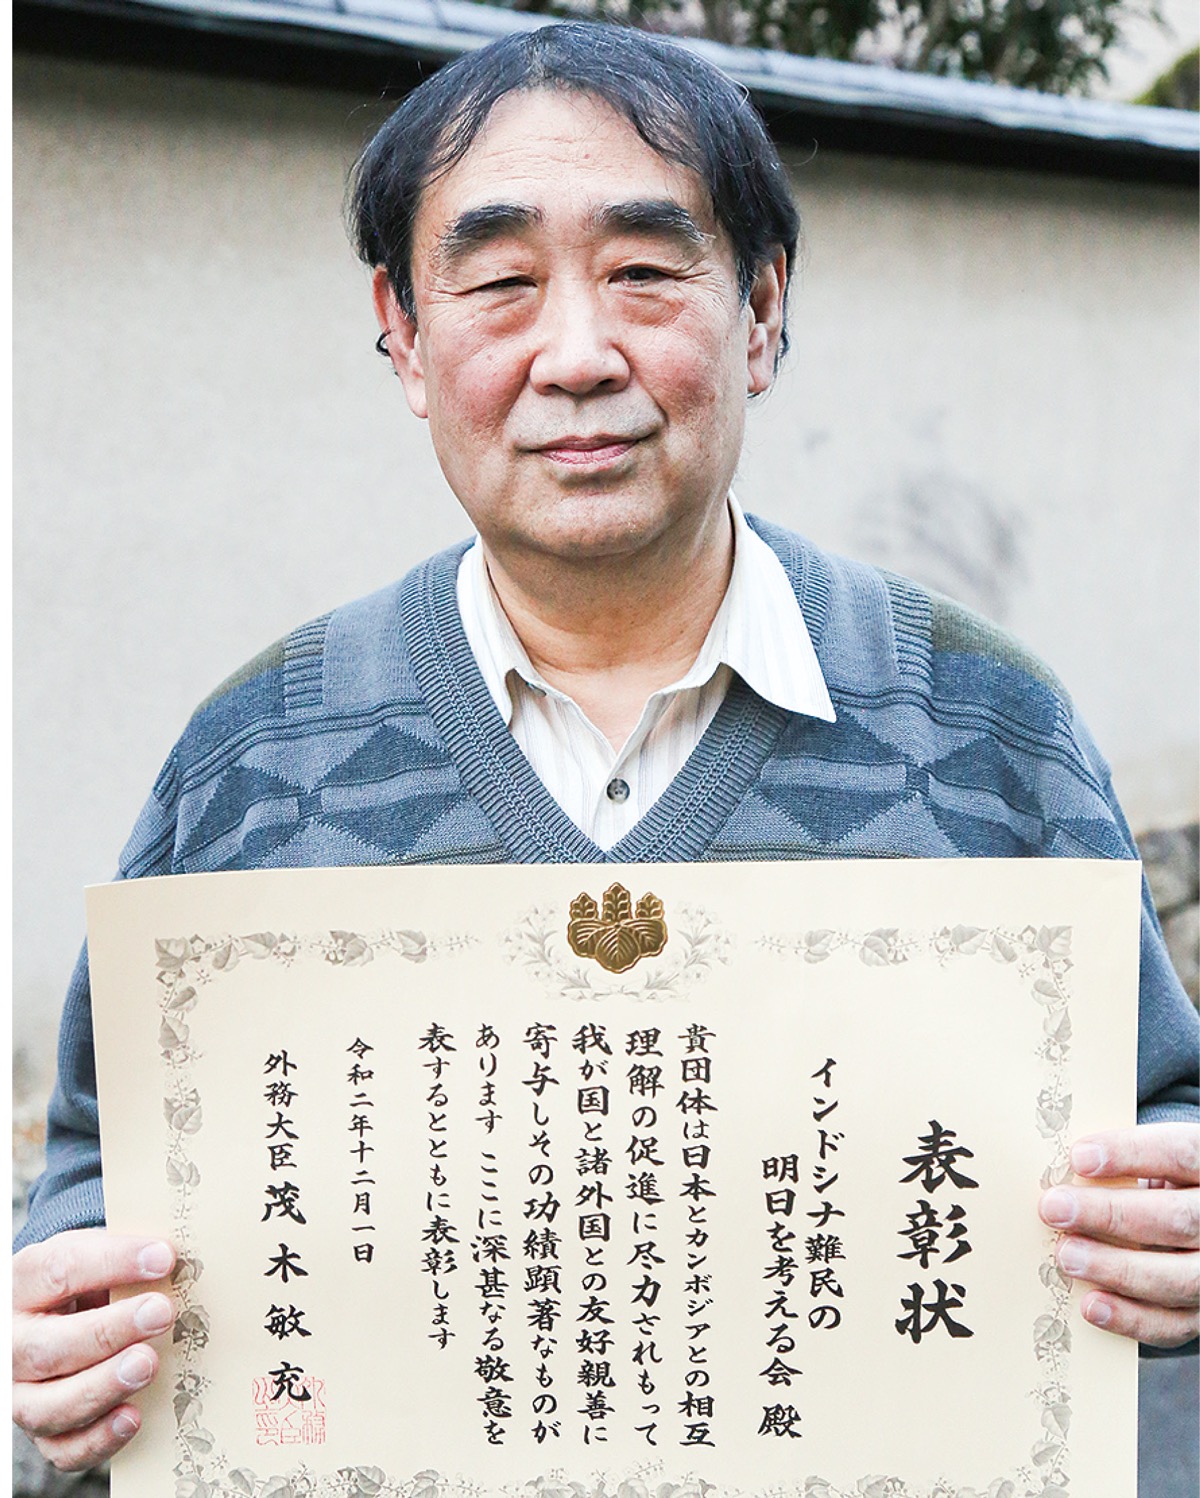 表彰状
インドシナ難民の
明日を考える会 殿
貴団体は日本とカンボジアとの相互
理解の促進に尽力されもって
我が国と諸外国との友好親善に
寄与しその功績顕著なものが
あります ここに深甚なる敬意を
表するとともに表彰します
令和二年十二月一日
外務大臣 茂木敏充